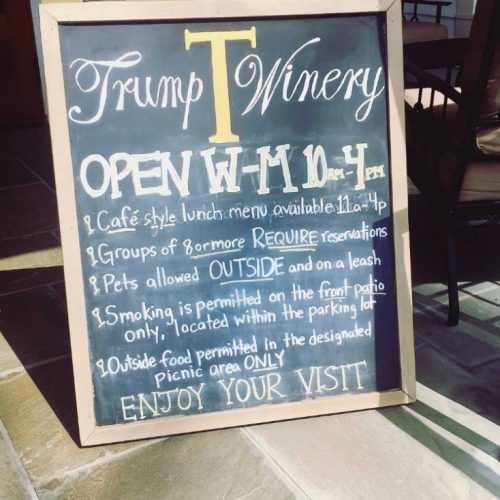 Trump T Winery
OPEN W-M 10AM-4PM
Café style lunch menu available 11a-4p
Groups of 8 or more REQUIRE reservations
Pets allowed OUTSIDE and on a leash
Smoking is permitted on the front patio
only, located within the parking lot
Outside food permitted in the designated
picnic area ONLY
ENJOY YOUR VISIT